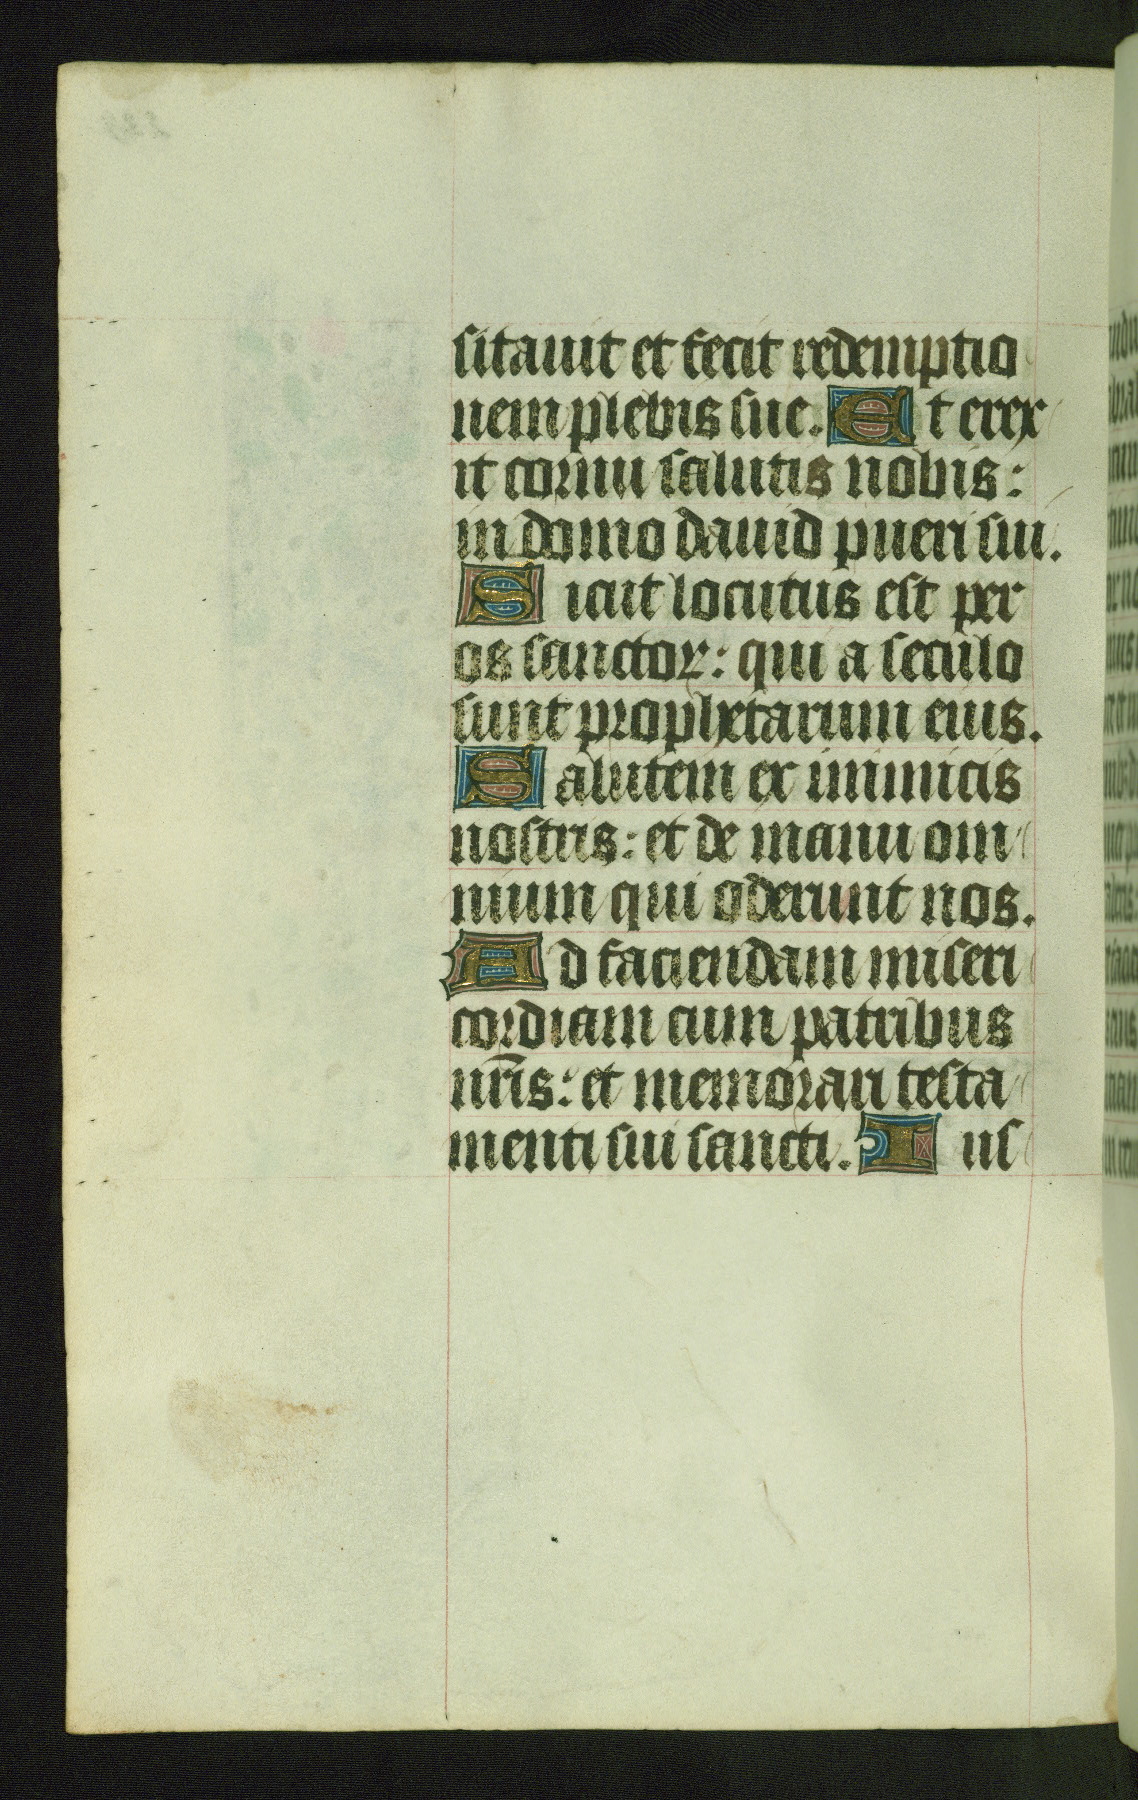 sitauit et fecit redemptio
nem plebis sue. Et erex
it cornu salutis nobis:
in domo dauid pueri sui.
Sicut locutus est per
os sanctoꝝ: qui a seculo
sunt prophetarum eius.
Salutem ex inimicis
nostris: et de manu om
nium qui oderunt nos.
Ad faciendam miseri
cordiam cum patribus
nr̄is: et memorari testa
menti sui sancti. Ius